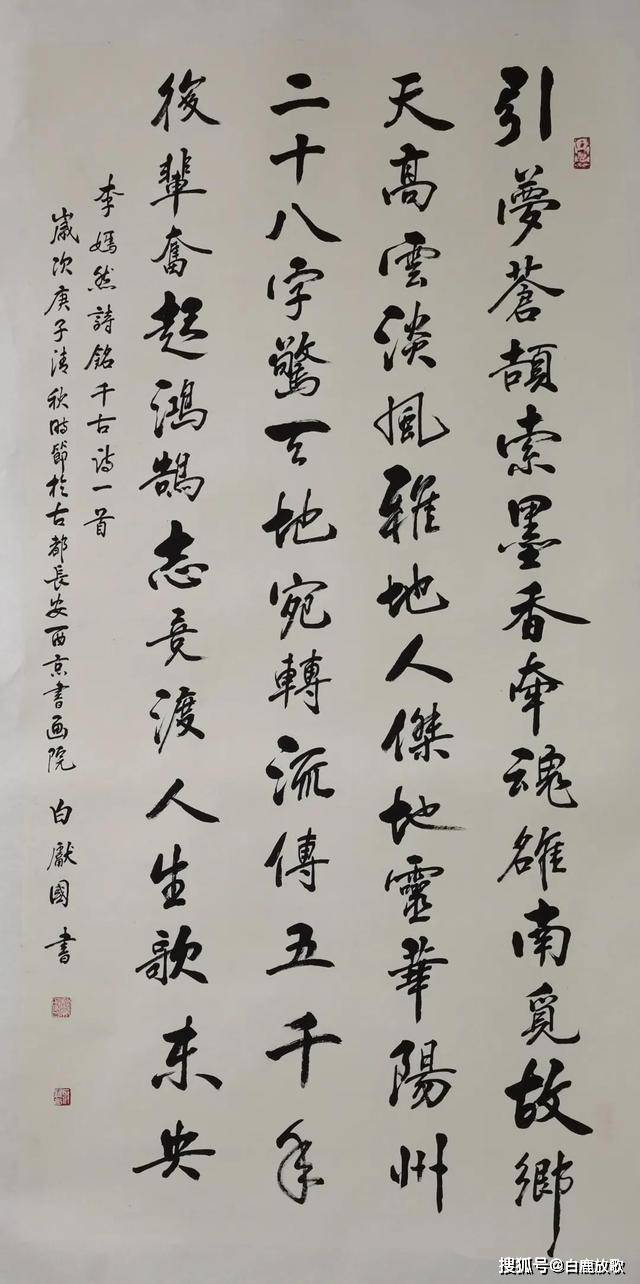 引夢蒼頡索墨香牽魂雒南覓故鄉
天高雲淡風雅地人傑地靈華陽州
二十八字驚天地宛轉流傳五千年
後輩奮起鴻鵠志竟渡人生歌未央
李嫣然詩銘千古詩一首
歲次庚子清秋時節於古都長安西京書画院 白獻國 書
搜狐号@白鹿放歌